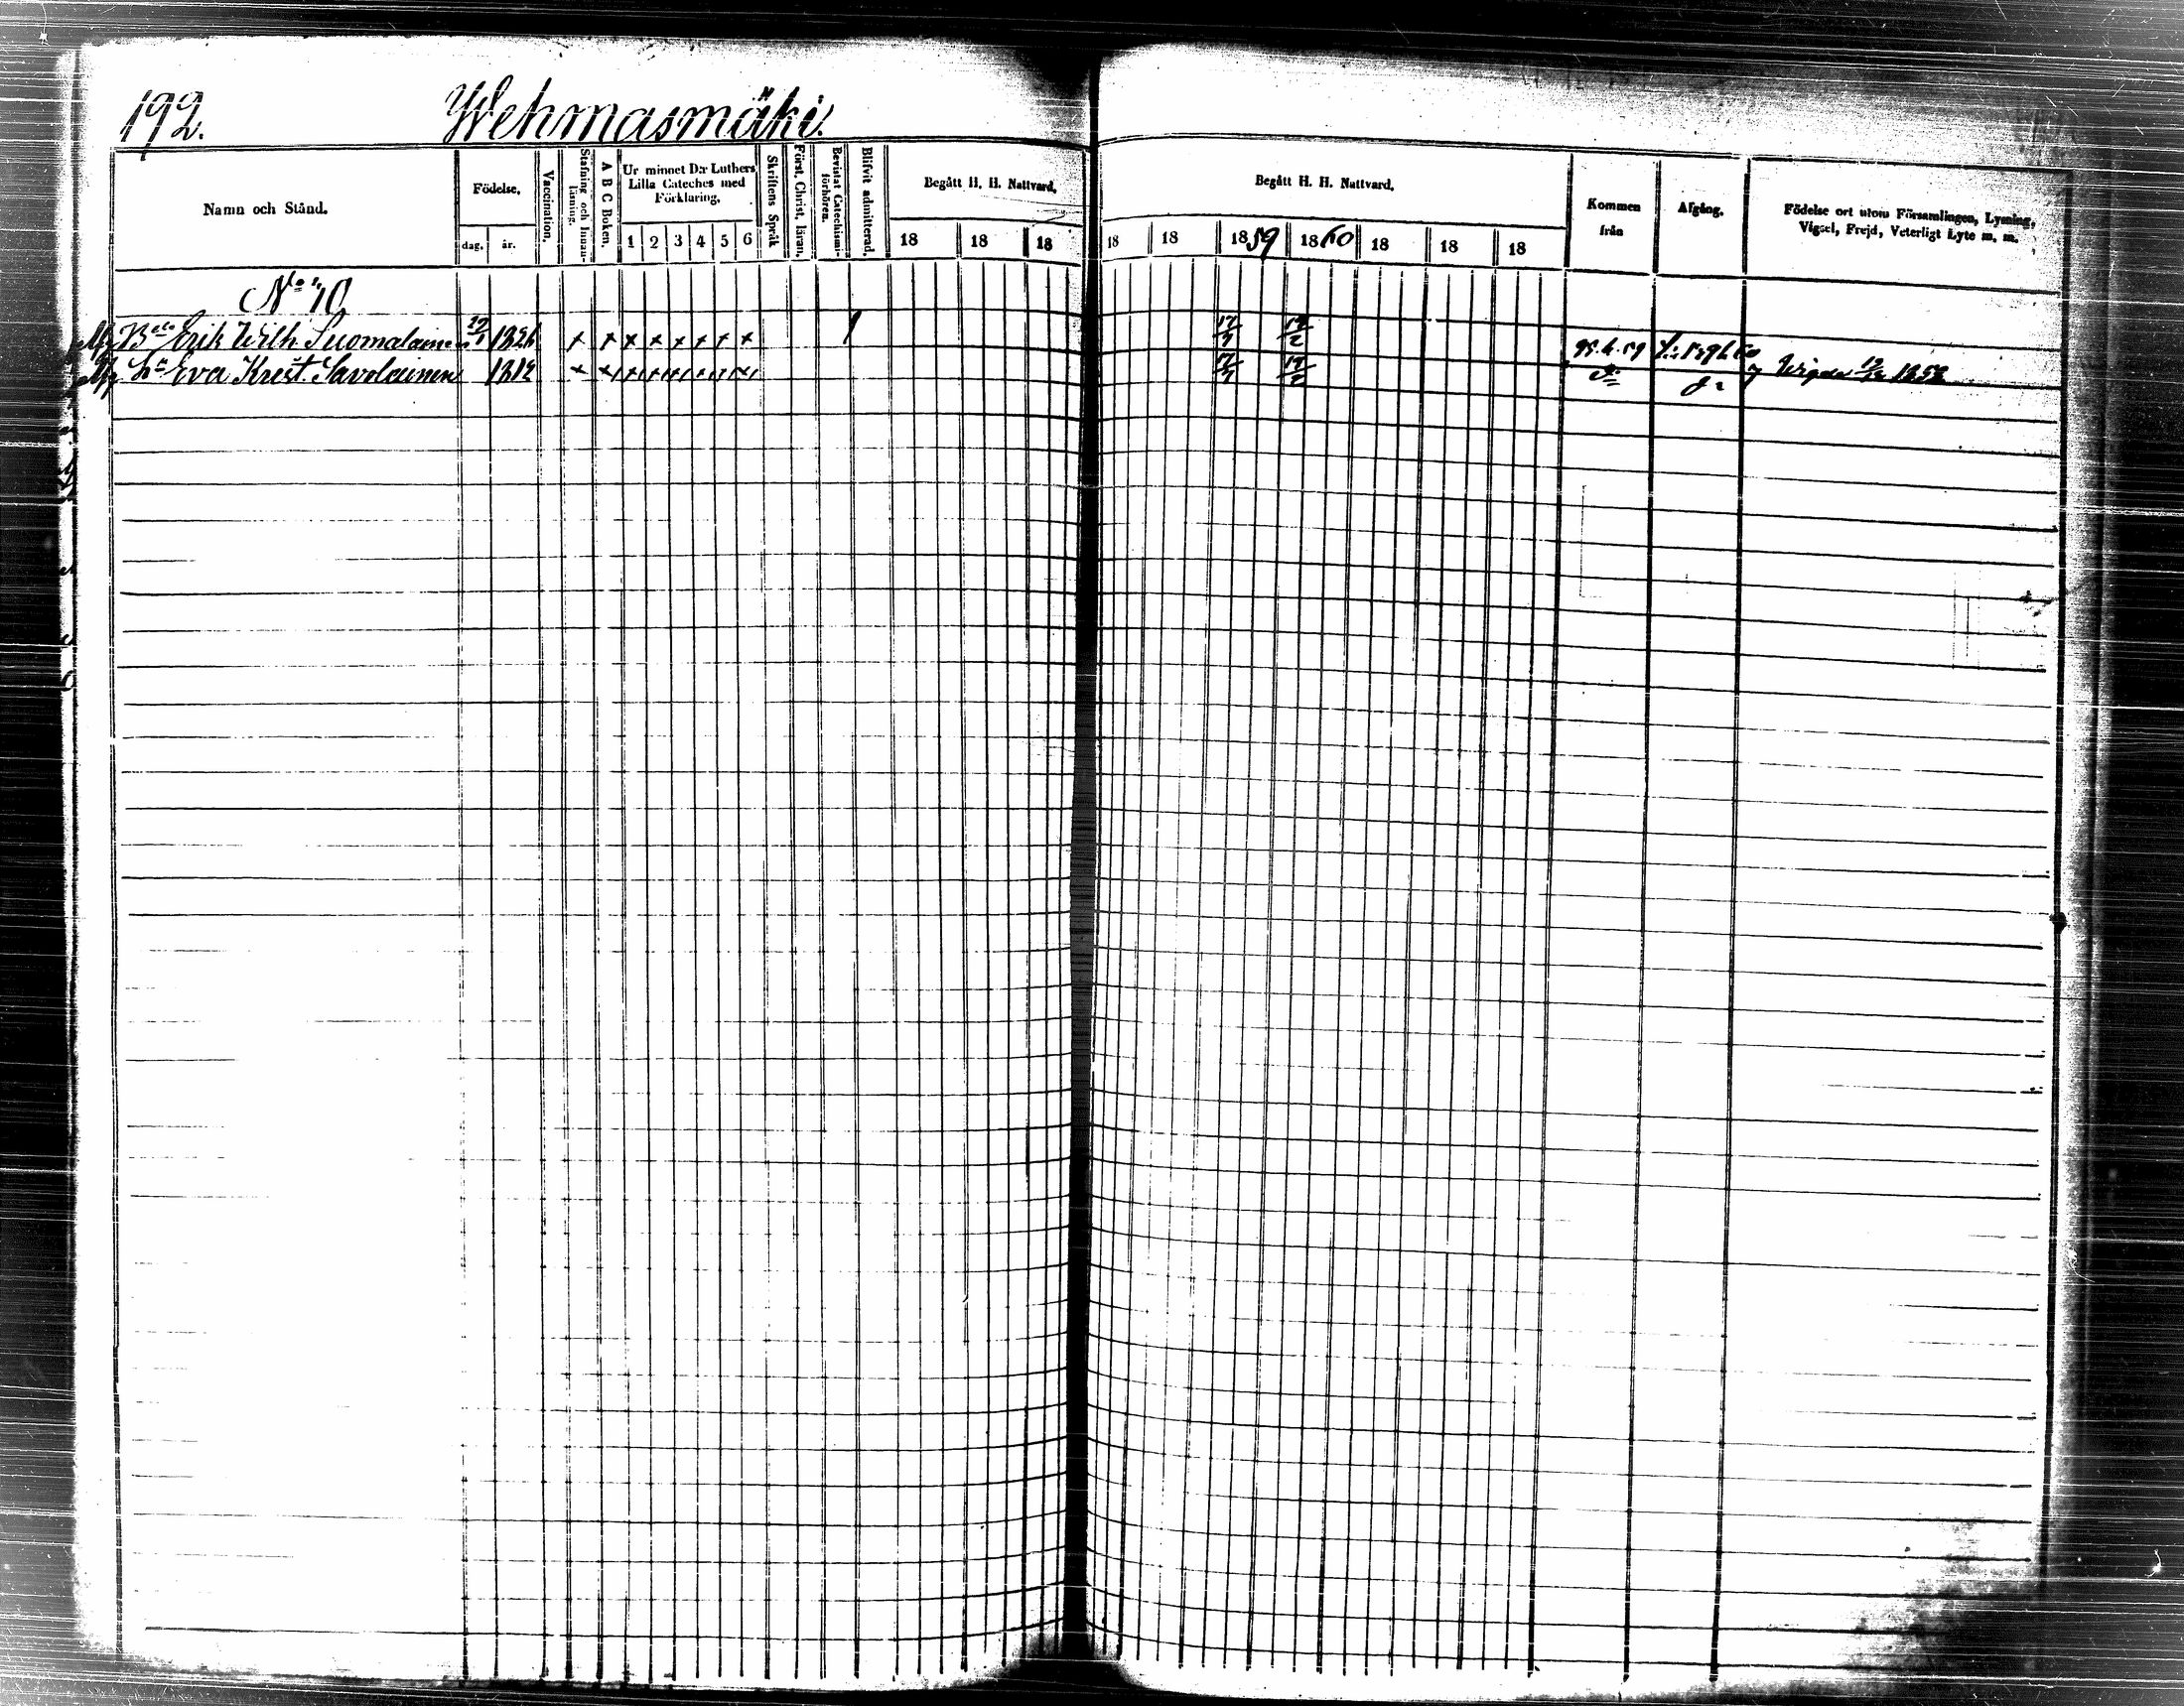 192. Wehmasmäki.
Namn och Stånd.
Födelse.
dag. år.
Vaccination.
Stafning och Innan-läsning.
A B C Boken.
Ur minnet D:r Luthers Lilla Cateches med Förklaring.
1 2 3 4 5 6
Skriftens Språk
Först. Christ. läran.
Bevistat Catechismi-förhören.
Blifvit admitterad.
Begått H. H. Nattvard.
18 18 18
Begått H. H. Nattvard.
18 18 1859 1860 18 18 18
Kommen från
Afgång.
Födelse ort utom Församlingen, Lysning, Vigsel, Frejd, Veterligt Lyte m. m.
No 10
Erik Wilh Suomalainen 1826 x x x x x x x x
Eva Krist. Savolainen 1812 x x x x x x x x 1858